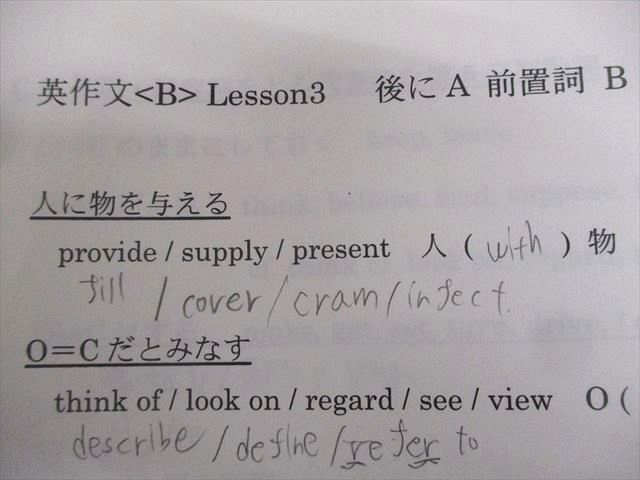 英作文<B> Lesson3 後に A 前置詞 B
人に物を与える
provide / supply / present 人 ( with ) 物
fill / cover / cram / infect
O=Cだとみなす
think of / look on / regard / see / view O (
describe / define / refer to